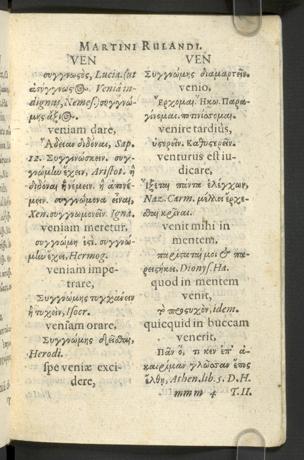 MARTINI RULANDI.
VEN
συγγνωςὸς, Lucia. (ut
ἀσύγγνωςος. Venia in-
dignus, Nemes.) συγγνώ-
μης ἄξιος.
veniam dare,
Ἄδειαν διδόναι, Sap.
12. Συγγινώσκειν. συγ-
γνώμην ἔχειν, Aristot. ἢ
διδόναι ἢ νέμειν. ἢ ἀπονέ-
μειν. συγγνώμονα εἶναι,
Xen. συγγνωμονεῖν. Igna.
veniam meretur,
συγγνώμη ἐςί. συγγνώ-
μην ἔχει, Hermog.
veniam impe-
trare,
Συγγνώμης τυγχάνειν
ἢ τυχεῖν, Isocr.
veniam orare,
Συγγνώμης δεῖσθαι,
Herodi.
spe veniæ exci-
dere,
VEN
Συγγνώμης διαμαρτεῖν.
venio,
Ἔρχομαι. Ἥκω. Παρα-
γίνομαι.
venire tardiùs,
ὑςερεῖν. Καθυςερεῖν.
venturus est iu-
dicare,
Ἥξεται πάντα ἐλέγχων,
Naz. Carm. μέλλει ἔρχε-
σθαι κρῖναι.
venit mihi in
mentem,
παρίσταταί μοι &
Dionys. Ha.
quod in mentem
venit,
τὸ idem.
quicquid in buccam
venerit,
Πᾶν ὅ, τι κεν ἐπ' ἀ-
καιρίμαν γλῶσσαν ἔπος
ἔλθῃ, Athen. lib. 5. D. H.
mmm 4 T. II.